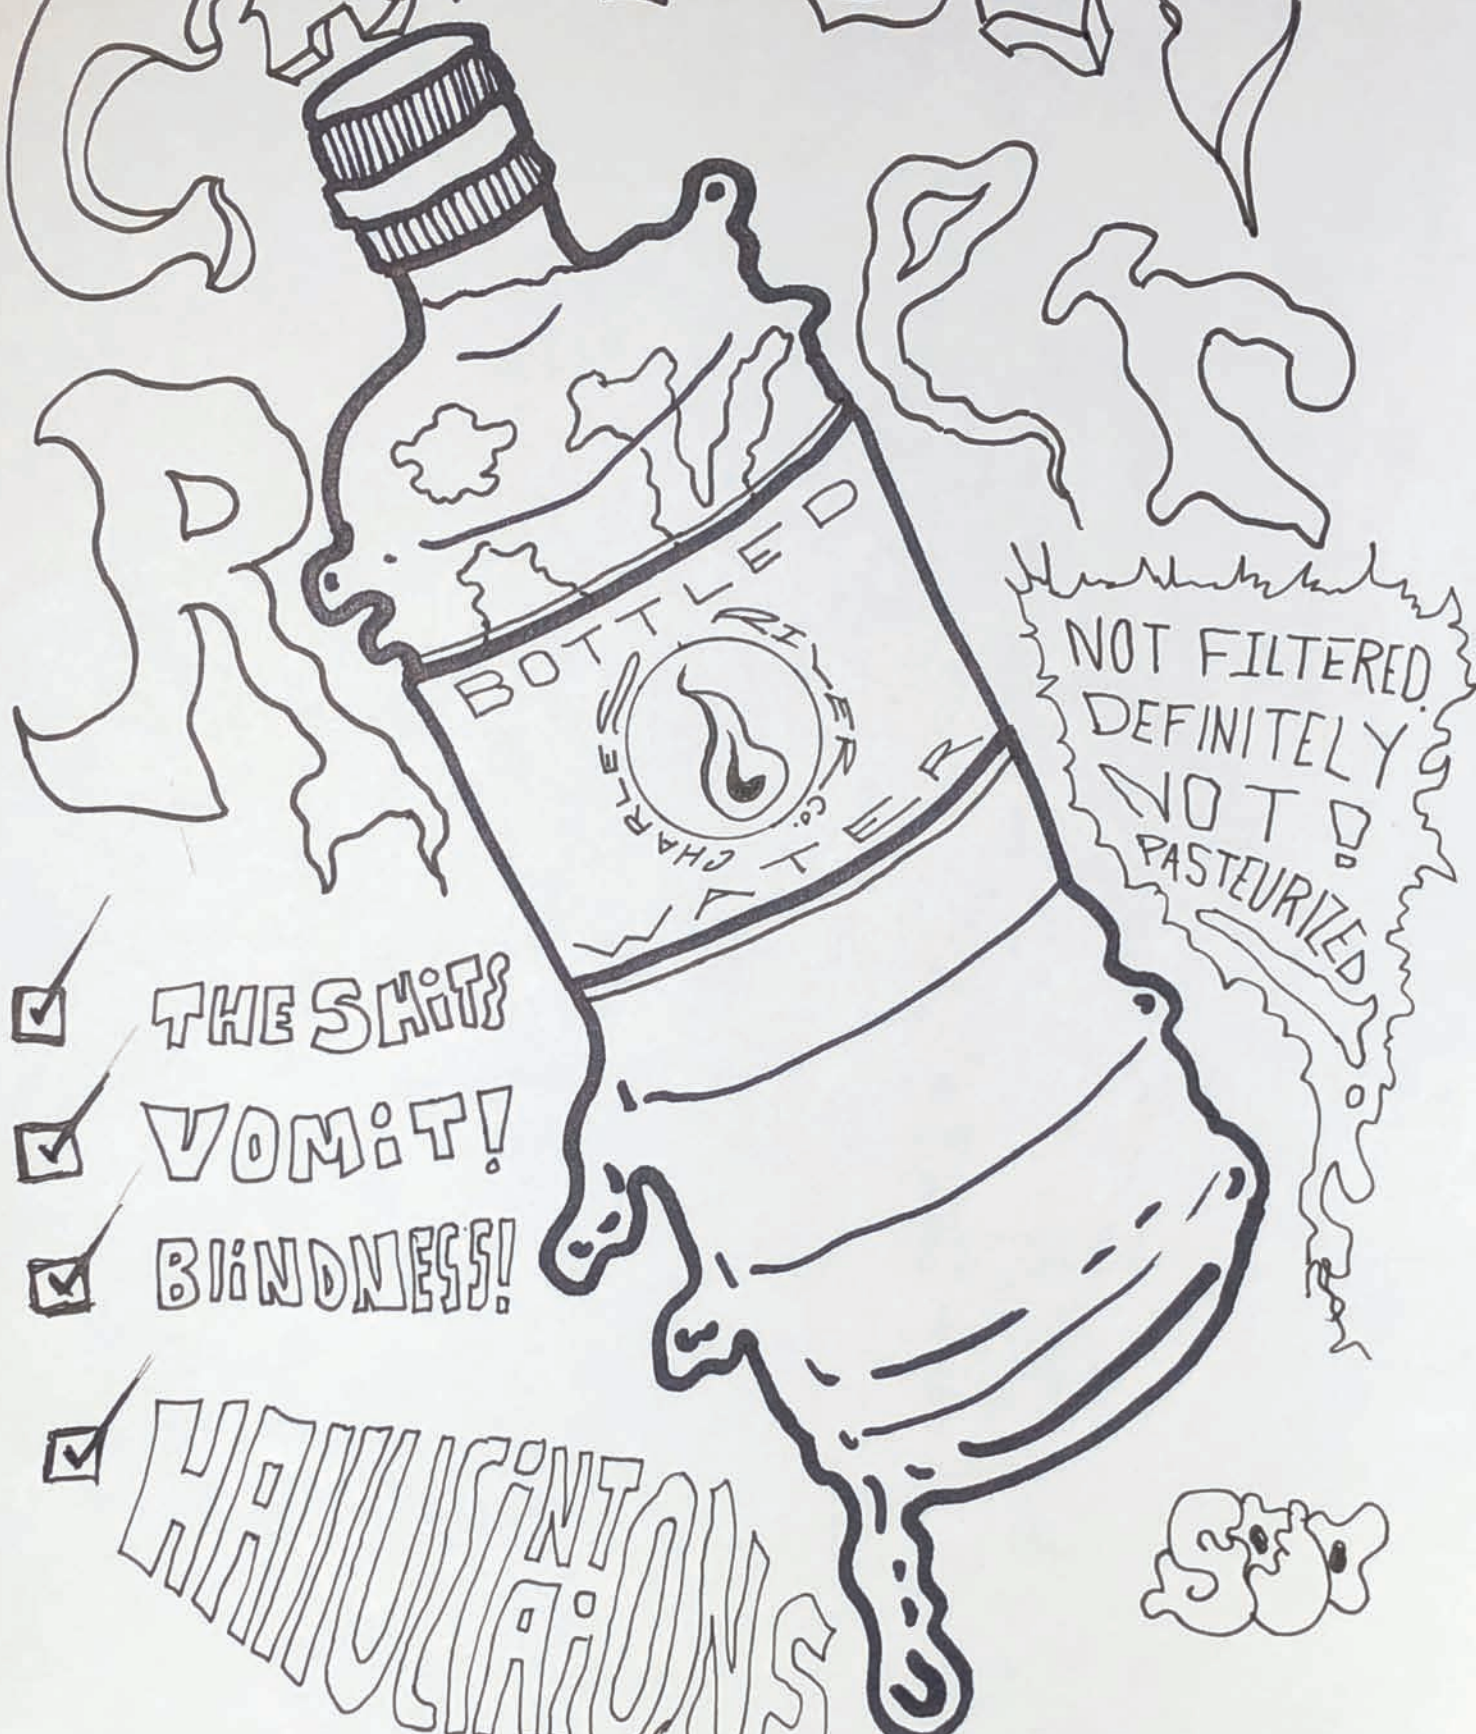 BOTTLED
CHARLES RIVER CO.
WATER
NOT FILTERED.
DEFINITELY
NOT!
PASTEURIZED
THE SHiTS
VOMiT!
BLiNDNESS!
HAllUCiNTAiONS